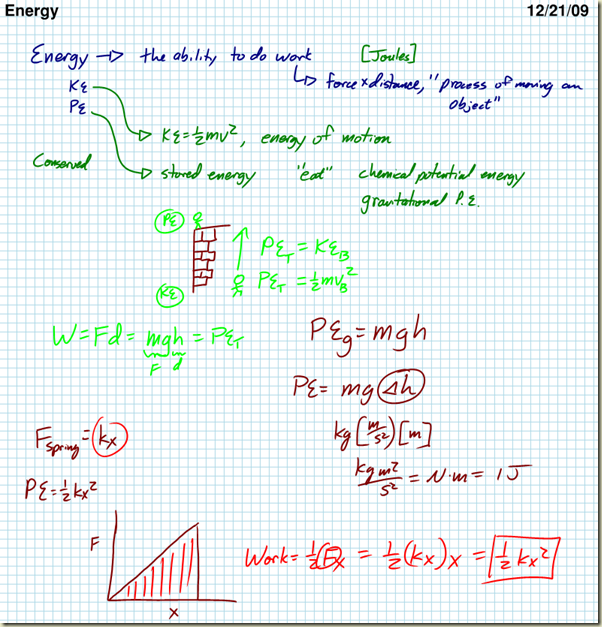 Energy 12/21/09
Energy → the ability to do work [Joules]
↳ force x distance, "process of moving an
object"
KE
PE
KE = ½mv², energy of motion
Conserved
stored energy "eat" chemical potential energy
gravtational P.E.
PE
PE_T = KE_B
PE_T = ½mv_B²
KE
W = Fd = mgh = PE_T
F d
PE_g = mgh
PE = mg Δh
kg [m/s²] [m]
kg m²/s² = N·m = 1 J
F_spring = kx
PE = ½kx²
F
x
Work = ½(F)x = ½(kx)x = ½kx²